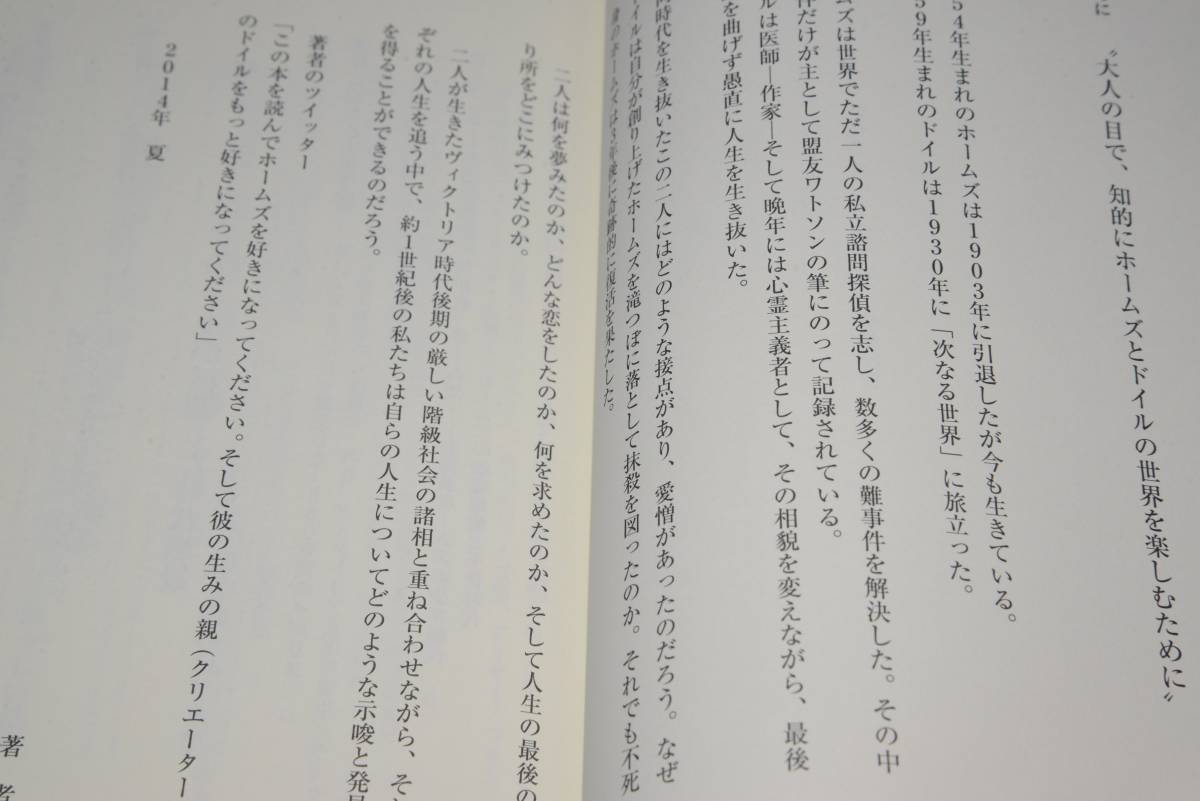 に　〝大人の目で、知的にホームズとドイルの世界を楽しむために〟
54年生まれのホームズは1903年に引退したが今も生きている。
59年生まれのドイルは1930年に「次なる世界」に旅立った。
ムズは世界でただ一人の私立諮問探偵を志し、数多くの難事件を解決した。その中
件だけが主として盟友ワトソンの筆にのって記録されている。
ルは医師―作家―そして晩年には心霊主義者として、その相貌を変えながら、最後
を曲げず愚直に人生を生き抜いた。
時代を生き抜いたこの二人にはどのような接点があり、愛憎があったのだろう。なぜ
イルは自分が創り上げたホームズを滝つぼに落として抹殺を図ったのか。それでも不死
のホームズは3年後に奇跡的に復活を果たした。
二人は何を夢みたのか、どんな恋をしたのか、何を求めたのか、そして人生の最後の
り所をどこにみつけたのか。
二人が生きたヴィクトリア時代後期の厳しい階級社会の諸相と重ね合わせながら、そ
ぞれの人生を追う中で、約1世紀後の私たちは自らの人生についてどのような示唆と発見
を得ることができるのだろう。
著者のツイッター
「この本を読んでホームズを好きになってください。そして彼の生みの親（クリエーター
のドイルをもっと好きになってください」
2014年　夏
著　者